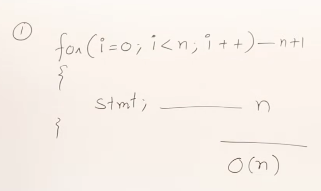 ①
for(i=0; i<n; i++)—n+1
{
stmt; ——— n
}
O(n)